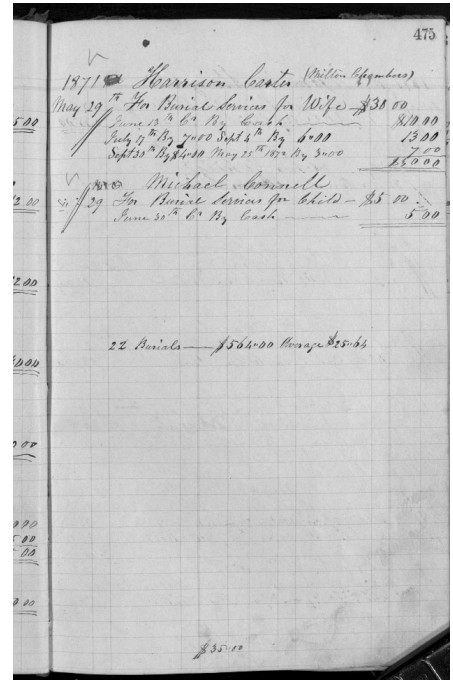 475
1871 Harrison Carter (Milton Chambers)
May 29th For Burial Services for Wife — $30 00
June 13th Cr By Cash — $10 00
July 17th By 7.00 Sept 4th By 6.00 13 00
Sept 30th By $4.00 May 25th 1872 By 3.00 7 00
$30 00
Michael Connell
" 29 For Burial Services for Child — $5 00
June 30th Cr By Cash — 5 00
22 Burials — $564.00 Average $25.64
$35.00
5 00
2 00
2 00
00
00
00
00
0 00